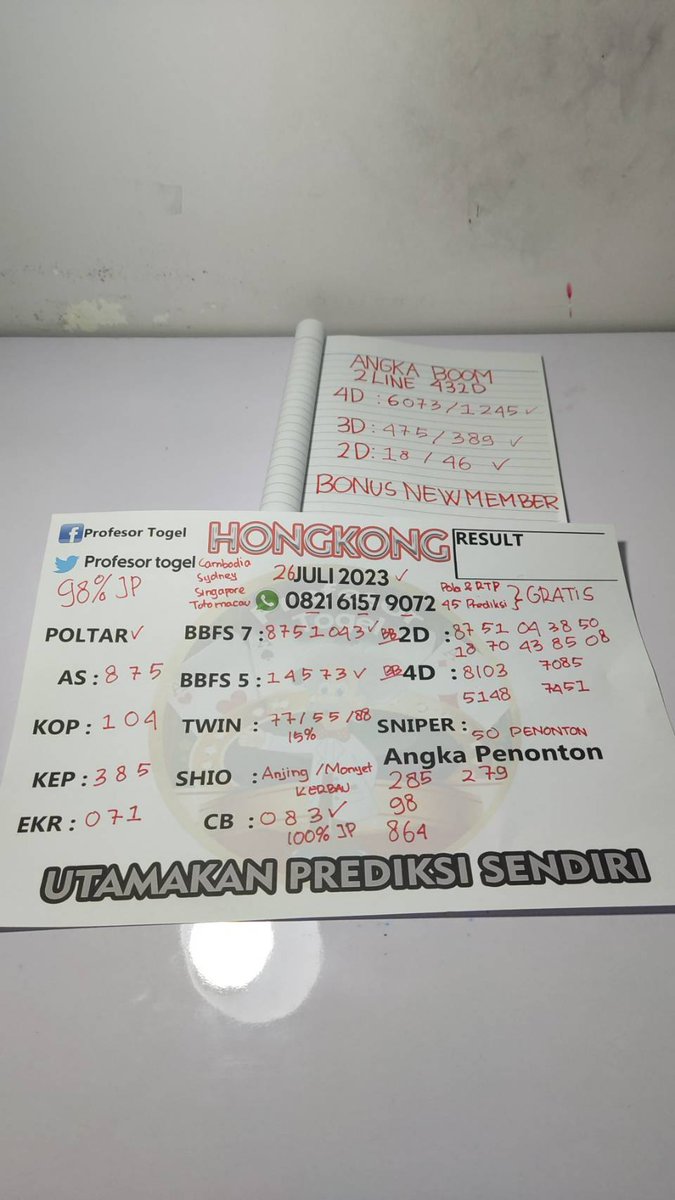 ANGKA BOOM
2 LINE 432D
4D : 6073/1245 ✓
3D: 475/389 ✓
2D: 18 / 46 ✓
BONUS NEW MEMBER
Profesor Togel
HONGKONG
RESULT
Profesor togel
98% JP
Cambodia
Sydney
Singapore
Totomacau
26 JULI 2023 ✓
0821 6157 9072
Pola & RTP
45 Prediksi
GRATIS
POLTAR ✓
AS : 875
KOP : 104
KEP : 385
EKR : 071
BBFS 7 : 8751043 ✓
BBFS 5 : 14573 ✓
TWIN : 77/55/88
15%
SHIO : Anjing/Monyet
KERBAU
CB : 083 ✓
100% JP
BB 2D : 87 51 04 38 50
18 70 43 85 08
BB 4D : 8103 7085
5148 7451
SNIPER : 50 PENONTON
Angka Penonton
285 279
98
864
UTAMAKAN PREDIKSI SENDIRI